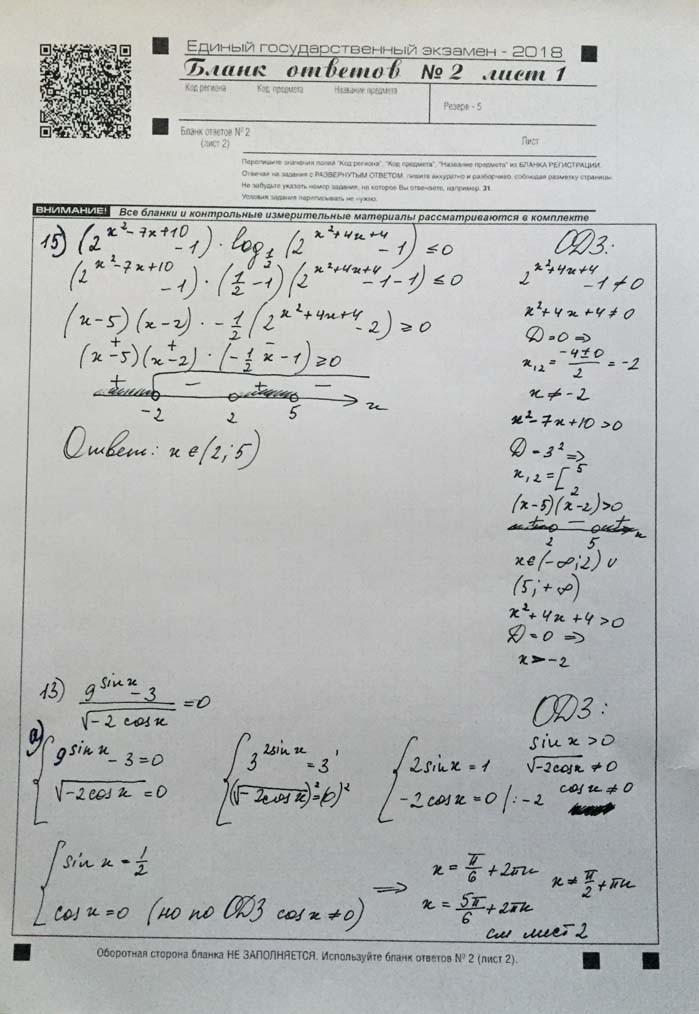 Единый государственный экзамен - 2018
Бланк ответов № 2 лист 1
Код региона Код предмета Название предмета
Резерв - 5
Бланк ответов № 2
(лист 2)
Лист
Перепишите значения полей "Код региона", "Код предмета", "Название предмета" из БЛАНКА РЕГИСТРАЦИИ.
Отвечая на задания с РАЗВЕРНУТЫМ ОТВЕТОМ, пишите аккуратно и разборчиво, соблюдая разметку страницы.
Не забудьте указать номер задания, на которое Вы отвечаете, например, 31.
Условия задания переписывать не нужно.
ВНИМАНИЕ! Все бланки и контрольные измерительные материалы рассматриваются в комплекте
15) (2^(x²-7x+10) -1) · log_(1/2) (2^(x²+4x+4) -1) ≤ 0
(2^(x²-7x+10) -1) · (1/2 -1) (2^(x²+4x+4) -1-1) ≤ 0
(x-5)(x-2) · -1/2 (2^(x²+4x+4) -2) ≥ 0
(x-5)(x-2) · (-1/2 x -1) ≥ 0
+ - + -
-2 2 5 x
Ответ: x ∈ (2; 5)
ОДЗ:
2^(x²+4x+4) -1 ≠ 0
x²+4x+4 ≠ 0
D = 0 =>
x₁,₂ = (-4±0)/2 = -2
x ≠ -2
x²-7x+10 > 0
D = 3² =>
x₁,₂ = [5 2
(x-5)(x-2) > 0
+ - + x
2 5
x ∈ (-∞; 2) ∪
(5; +∞)
x²+4x+4 > 0
D = 0 =>
x > -2
13) (9^(sin x) -3)/√(-2 cos x) = 0
а) { 9^(sin x) -3 = 0
√(-2cos x) = 0
{ 3^(2sin x) = 3¹
(√(-2cos x))² = (0)²
{ 2sin x = 1
-2cos x = 0 /: -2
ОДЗ:
sin x > 0
√(-2cos x) ≠ 0
cos x ≠ 0
{ sin x = 1/2
cos x = 0 (но по ОДЗ cos x ≠ 0)
=> x = π/6 + 2πn
x = 5π/6 + 2πn
x ≠ π/2 + πn
см лист 2
Оборотная сторона бланка НЕ ЗАПОЛНЯЕТСЯ. Используйте бланк ответов № 2 (лист 2).